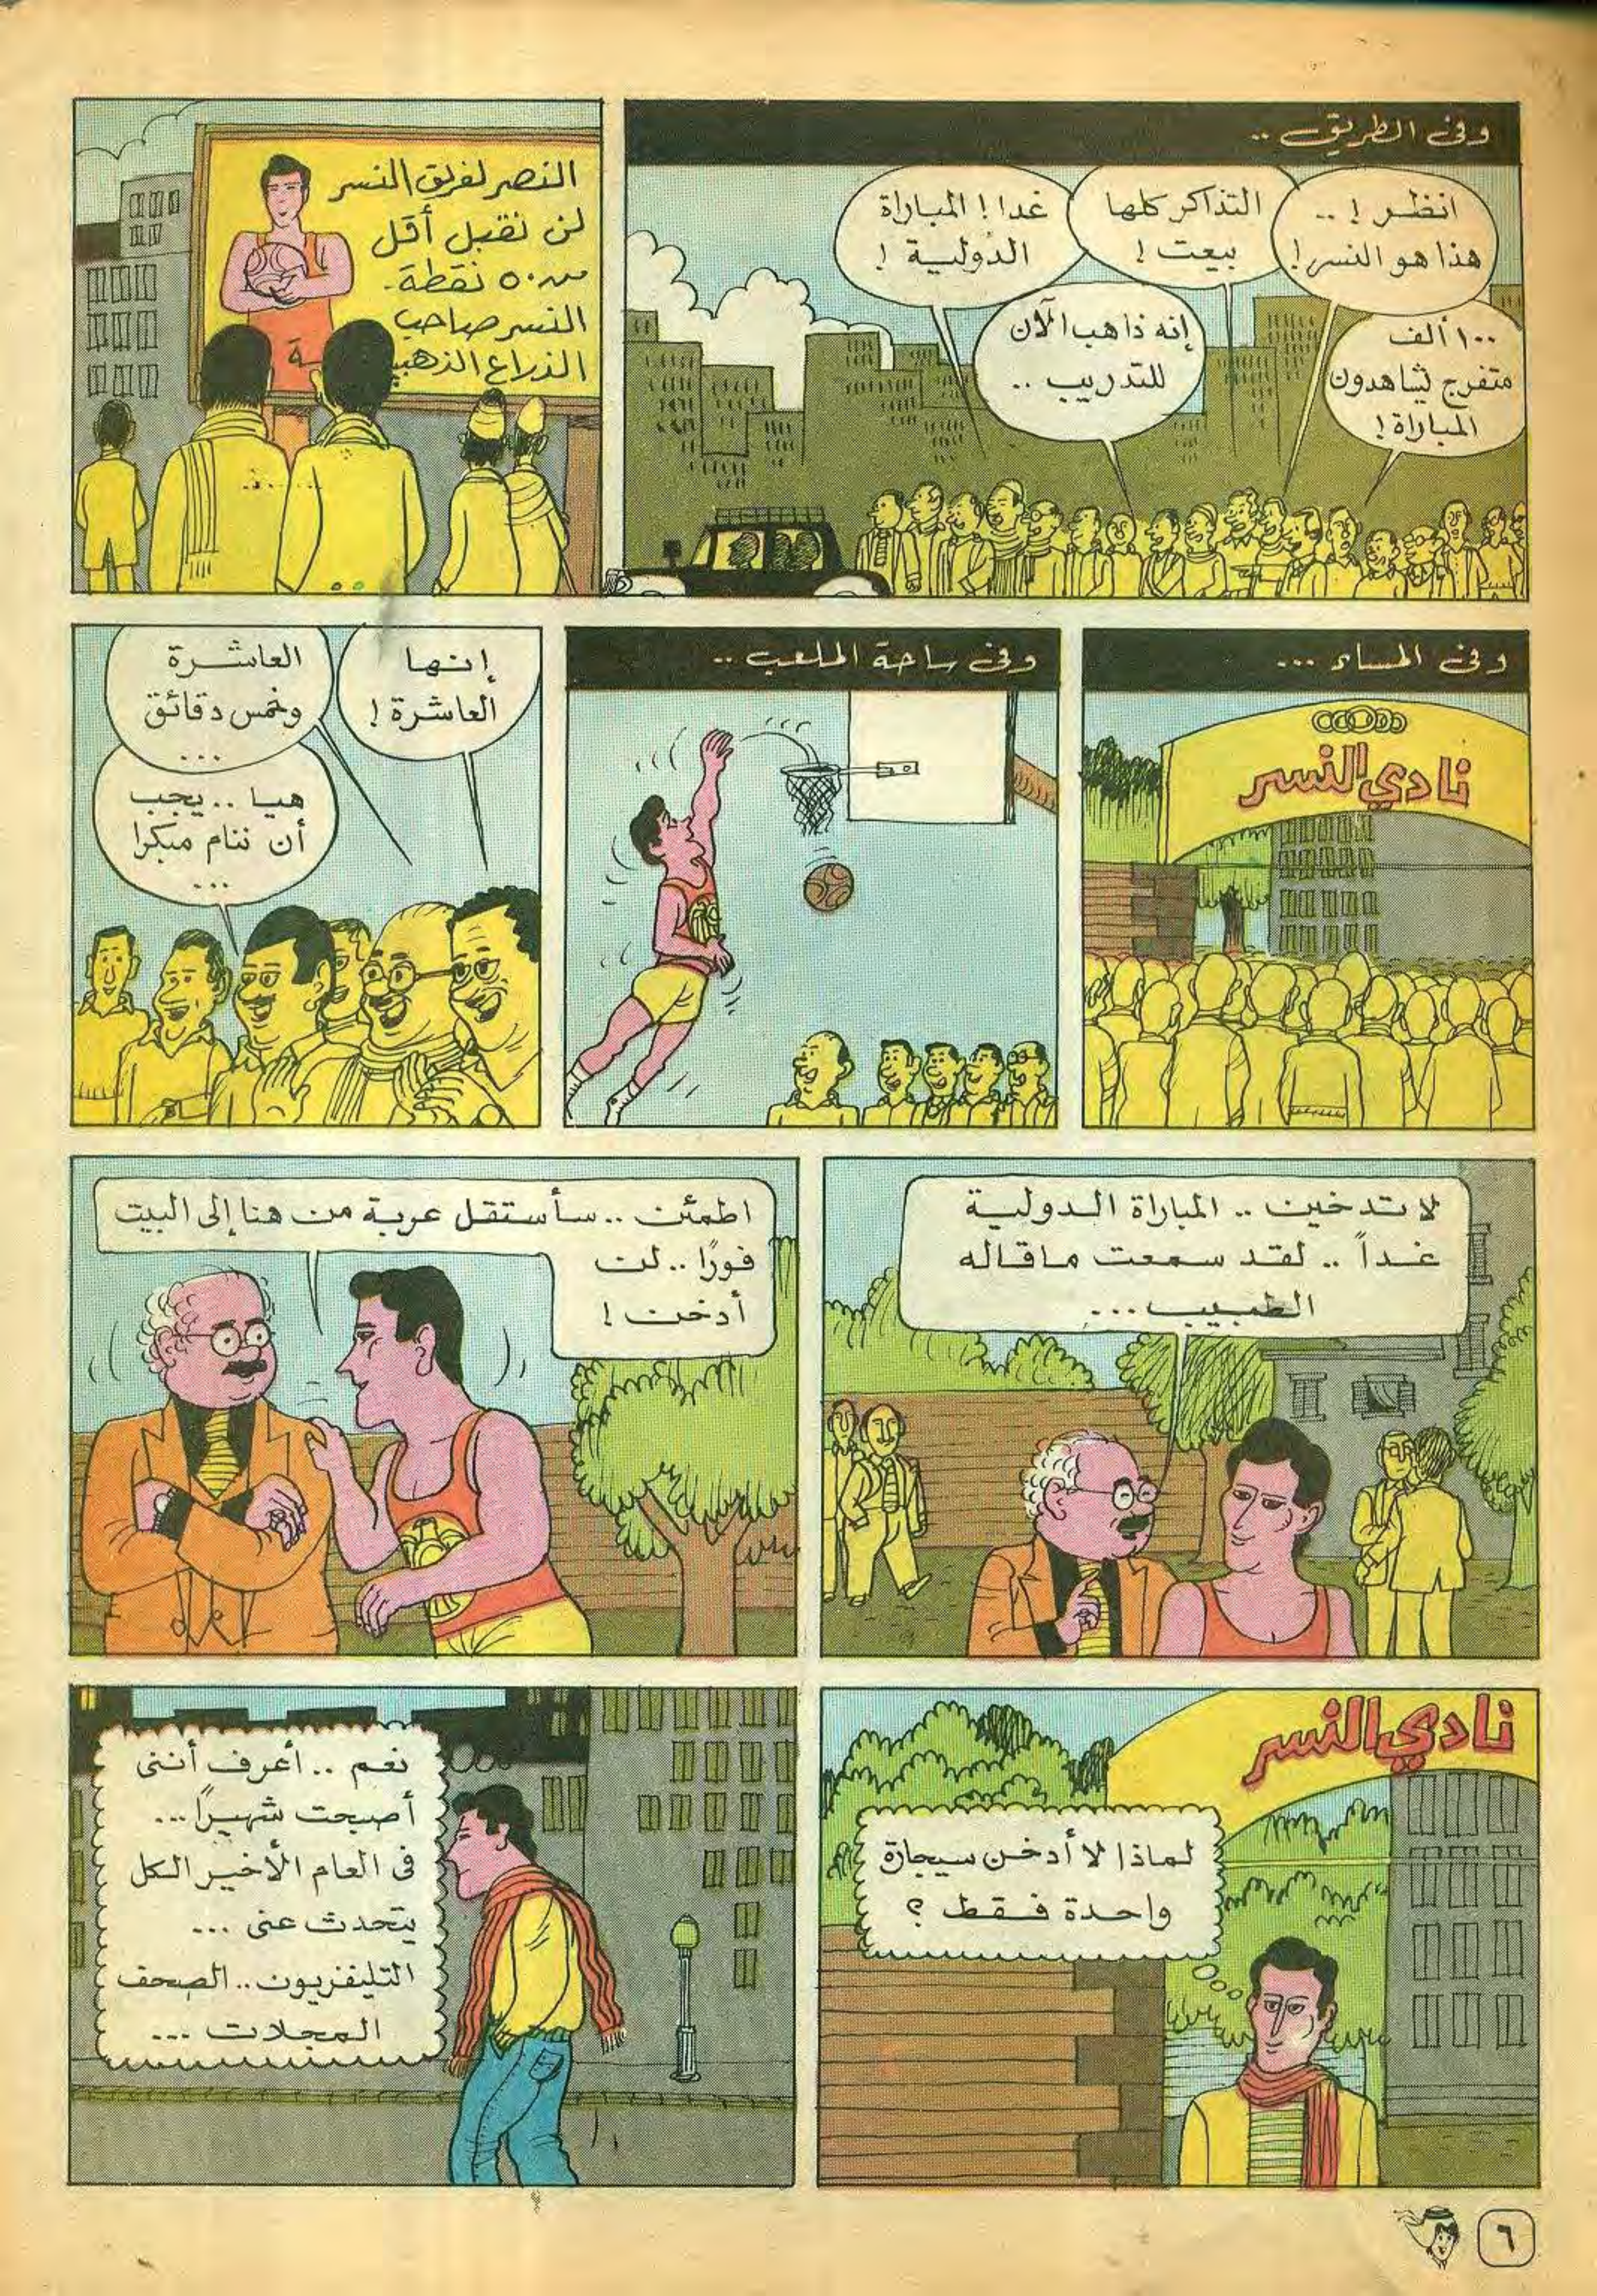 وفى الطريق ..
انظر ! ..
هذا هو النسر !
التذاكر كلها
بيعت !
غدا ! المباراة
الدولية !
١٠٠ ألف
متفرج يشاهدون
المباراة !
إنه ذاهب الآن
للتدريب ..
النصر لفريق النسر
لن نقبل أقل
من ٥٠ نقطة .
النسر صاحب
الذراع الذهبية
وفى المساء ...
نادي النسر
وفى ساحة الملعب ..
إنها
العاشرة !
العاشرة
وخمس دقائق
...
هيا .. يجب
أن ننام مبكرا
...
لا تدخين .. المباراة الدولية
غداً .. لقد سمعت ما قاله
الطبيب ...
اطمئن .. سأستقل عربة من هنا إلى البيت
فورًا .. لن
أدخن !
نادي النسر
لماذا لا أدخن سيجارة
واحدة فقط ؟
نعم .. أعرف أننى
أصبحت شهيرًا ...
فى العام الأخير الكل
يتحدث عنى ...
التليفزيون .. الصحف
المجلات ...
٦